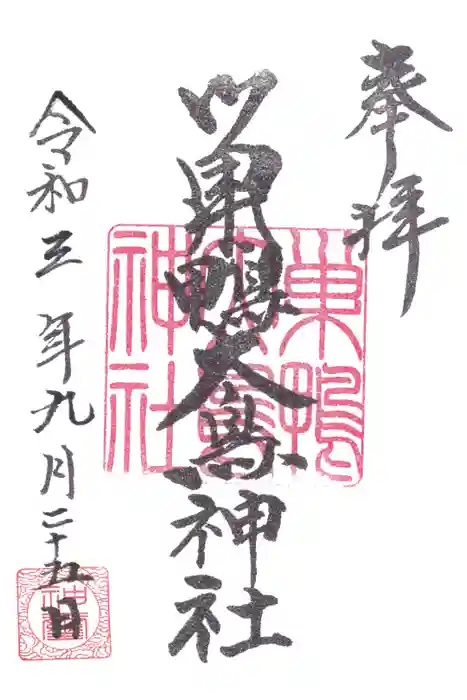 奉拝
巣鴨大鳥神社
巣鴨
大鳥
神社
令和三年九月二十五日